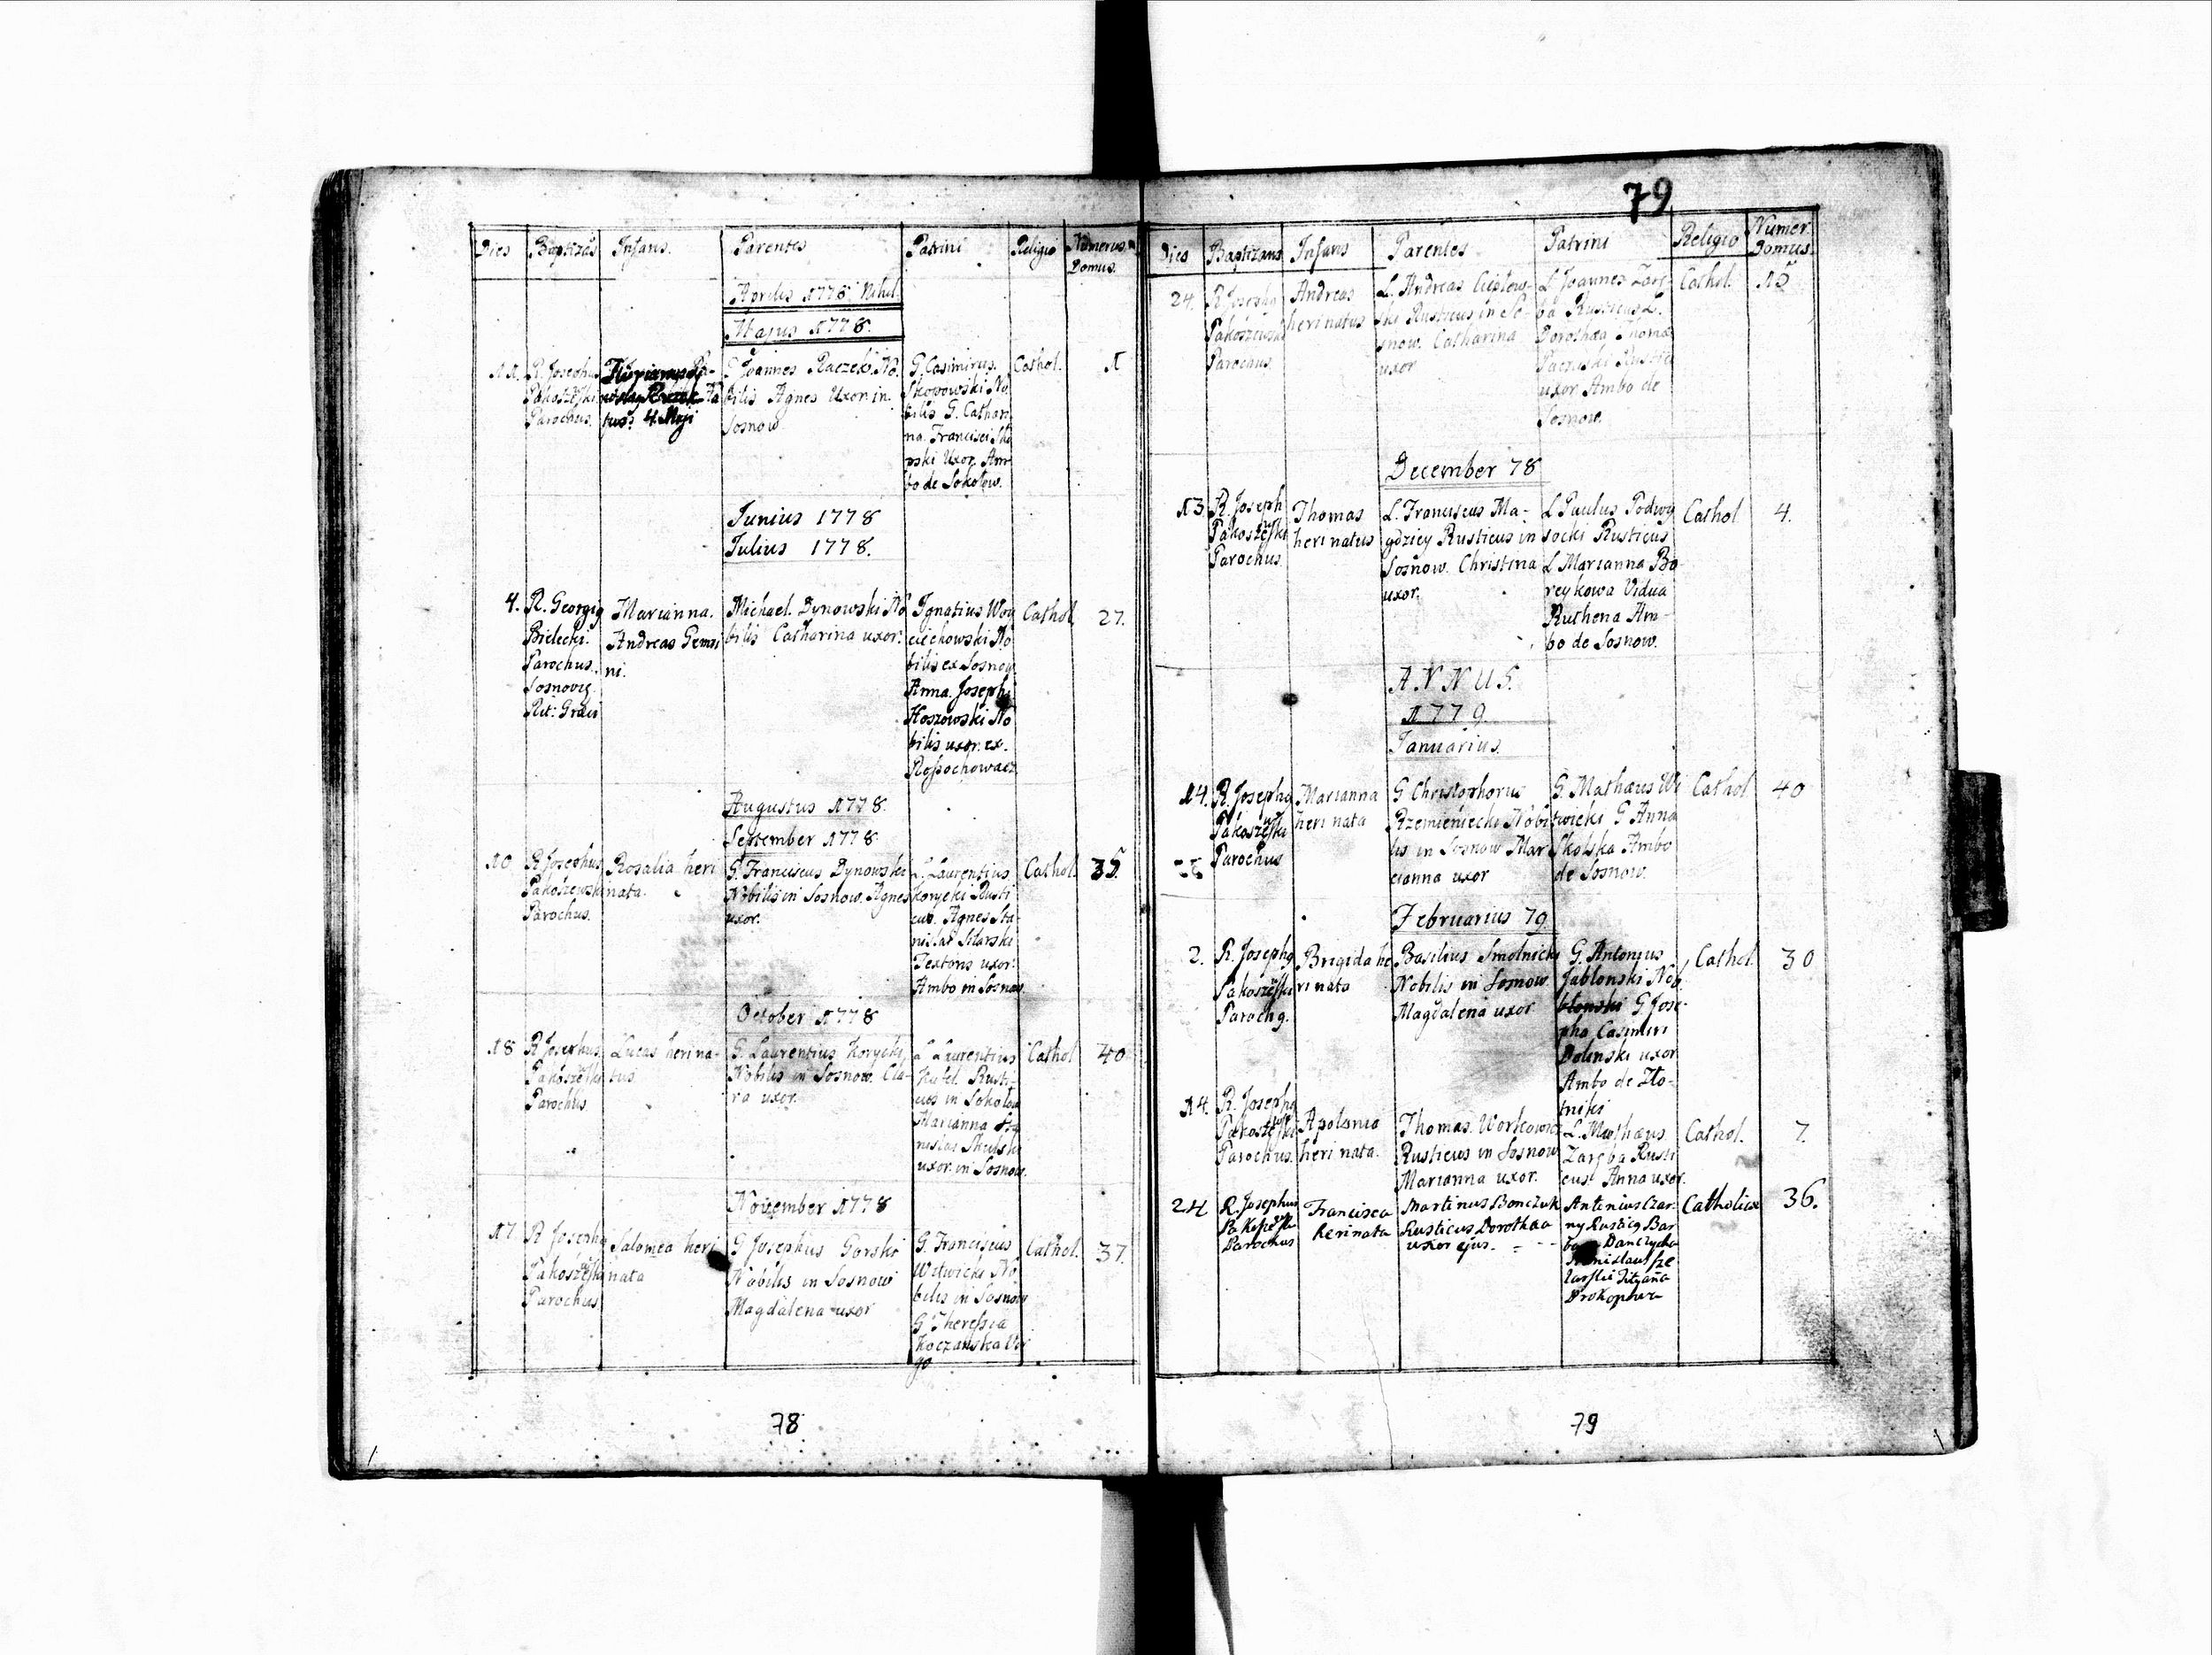 79
Dies Baptizas Infans. Parentes Patrini Religio Numerus Domus.
Aprilis 1778 Nihil
Majus 1778.
11. R. Josephus Pakoszewski Parochus.
4 Maji
G Joannes Raczek No-
bilis Agnes Uxor in
Sosnow
G. Casimirus
Skopowski No
bilis G. Cathari
na Francisci Sko
pski Uxor Am
bo de Sokołow.
Cathol. 1
Junius 1778
Julius 1778.
4. R. Georgig
Bielecki.
Parochus.
Sosnovig
Rit: Graeci
Marianna.
Andreas Gemi
ni.
Michael Dynowski No
bilis Catharina uxor.
Ignatius Woy
ciechowski No
bilis ex Sosnow
Anna Josephi
Hoszowski No
bilis uxor ex
Rossochowacz
Cathol. 27.
Augustus 1778.
September 1778.
10 R Josephus
Pakoszewski
Parochus.
Rosalia heri
nata.
G. Franciscus Dynowski
Nobilis in Sosnow. Agnes
uxor.
L. Laurentius
Korycki Rusti
cus. Agnes Sta
nislai Silarski
Textoris uxor.
Ambo in Sosnow.
Cathol. 35.
October 1778
18 R Josephus
Parochus
Lucas heri na-
tus.
G. Laurentius Korycki,
Nobilis in Sosnow. Cla-
ra uxor.
L Laurentius
Rusti-
cus in Sokolow
Marianna Sta
nislai Skulski
uxor in Sosnow.
Cathol 40
November 1778
17 R Josephg
Parochus
Salomea heri
nata
G Josephus Gorski
Nobilis in Sosnow
Magdalena uxor
G. Franciscus
Witwicki No
bilis in Sosnow
G Theressia
Koczanska Vir
go
Cathol. 37.
78
Dies Baptizans Infans Parentes Patrini Religio Numer. Domus.
24. R Josephg
Pakoszewski
Parochus
Andreas
heri natus
L. Andreas Cieplow-
ski Rusticus in So-
snow. Catharina
uxor
L Joannes Zarę-
ba Rusticus L.
Dorothea Thomæ
Paczuski Rustici
uxor Ambo de
Sosnow.
Cathol. 15
December 78
13 R. Joseph
Parochus
Thomas
heri natus
L. Franciscus Ma-
gdziey Rusticus in
Sosnow. Christina
uxor.
L Paulus Podwy
socki Rusticus
L Marianna Bo
reykowa Vidua
Ruthena Am-
bo de Sosnow.
Cathol 4.
ANNUS.
1779.
Januarius.
14. R. Josephg
Parochus
Marianna
heri nata
G Christophorus
Rzemieniecki Nobi
lis in Sosnow Mar
cianna uxor
G. Mathæus Wi
twicki G Anna
Skolska Ambo
de Sosnow.
Cathol 40
Februarius 79.
2. R. Josephg
Parochg.
Brigida he
ri nata
Basilius Smolnicki
Nobilis in Sosnow
Magdalena uxor
G. Antonius
Jablonski Nob
G Jose-
pha Casimiri
Dolinski uxor
Ambo de Zło-
tniki
Cathol. 30
14. R. Josephg
Parochus.
Apolonia
heri nata.
Thomas Workowicz
Rusticus in Sosnow
Marianna uxor.
L. Mathæus
Zaręba Rusti
cus Anna uxor.
Cathol. 7.
24 R. Josephus
Parochus
Francisca
heri nata
Martinus Bonczuk
Rusticus Dorothaa
uxor ejus.
Antonius Czar-
ny Rusticg Bar
Danczycha
Prokophu
Catholica 36.
79